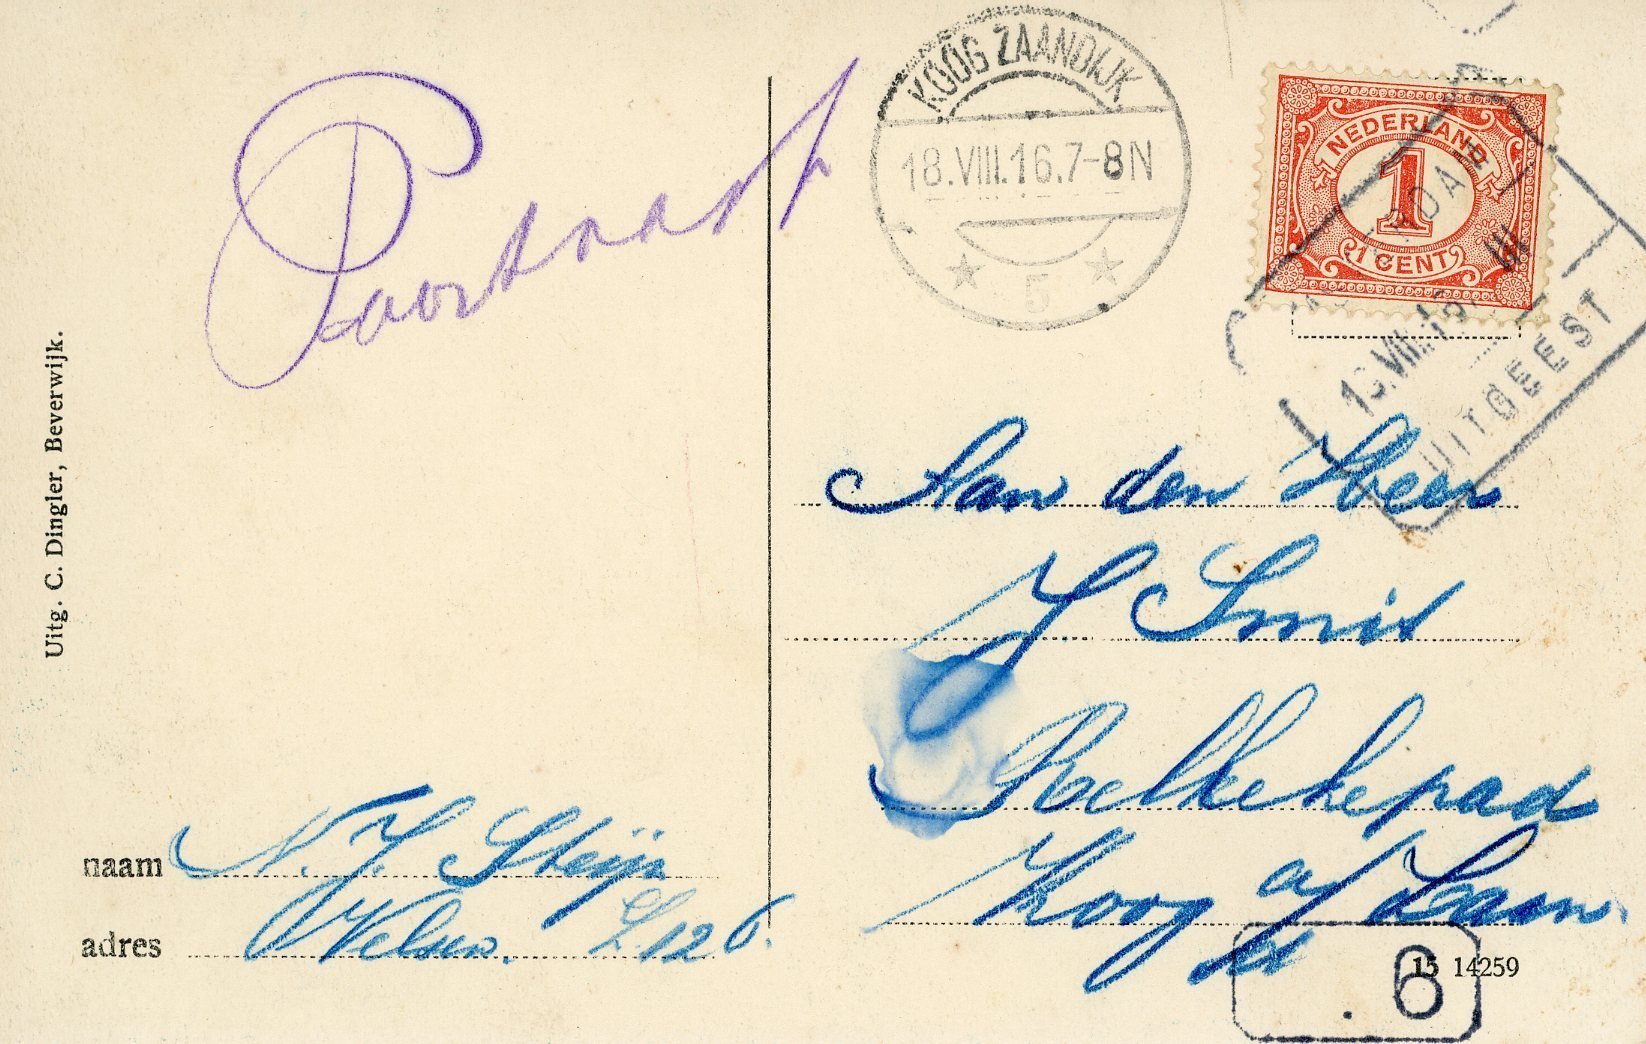 KOOG ZAANDIJK
18.VIII.16.7-8N
5
NEDERLAND
1
1 CENT
III
UITGEEST
Aan den Heer
J Smit
Koog a/ Zaan
6
15 14259
Uitg. C. Dingler, Beverwijk.
naam N. J. Steijn
adres Velsen. 126.